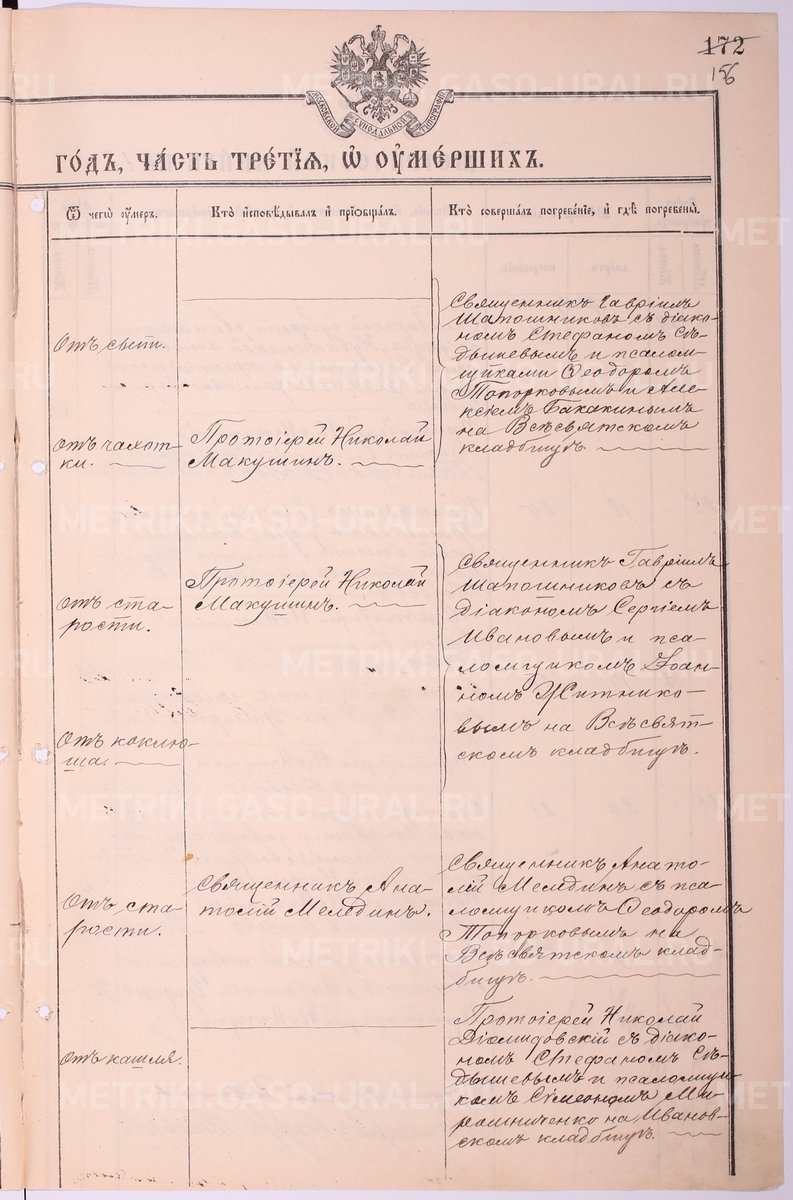 172
156
МОСКОВСКОЙ СѴНОДАЛЬНОЙ ТИПОГРАФІИ
ГО́ДЪ, ЧА́СТЬ ТРЕ́ТІЯ, Ѡ ОУ҆МЕ́РШИХЪ.
Ѿ чегѡ̀ оу҆́меръ.
Кто̀ и҆сповѣ́дывалъ и҆ прїѡбща́лъ.
Кто̀ соверша́лъ погребе́нїе, и҆ гдѣ̀ погребены̀.
Отъ сыпи.
Священникъ Гавріилъ
Шапошниковъ съ діако-
номъ Стефаномъ Сѣ-
дышевымъ и псалом-
щиками Ѳеодоромъ
Топорковымъ и Але-
ксіемъ Бакакинымъ
на Всѣсвятском
кладбищѣ
Отъ чахот-
ки.
Протоіерей Николай
Макушинъ.
Отъ ста-
рости.
Протоіерей Николай
Макушинъ.
Священникъ Гавріилъ
Шапошниковъ съ
діакономъ Сергіемъ
Ивановымъ и пса-
ломщикомъ Іоан-
номъ Житнико-
вымъ на Всѣсвят-
скомъ кладбищѣ.
Отъ коклю-
ша.
Отъ ста-
рости.
Священникъ Ана-
толій Мелединъ.
Священникъ Анато-
лій Мелединъ съ пса-
ломщикомъ Ѳеодоромъ
Топорковымъ на
Всѣсвятскомъ клад-
бищѣ.
Отъ кашля.
Протоіерей Николай
Діомидовскій съ діако-
номъ Стефаномъ Сѣ-
дышевымъ и псаломщи-
комъ Симеономъ Ми-
рошниченко на Иванов-
скомъ кладбищѣ.
METRIKI.GASO-URAL.RU